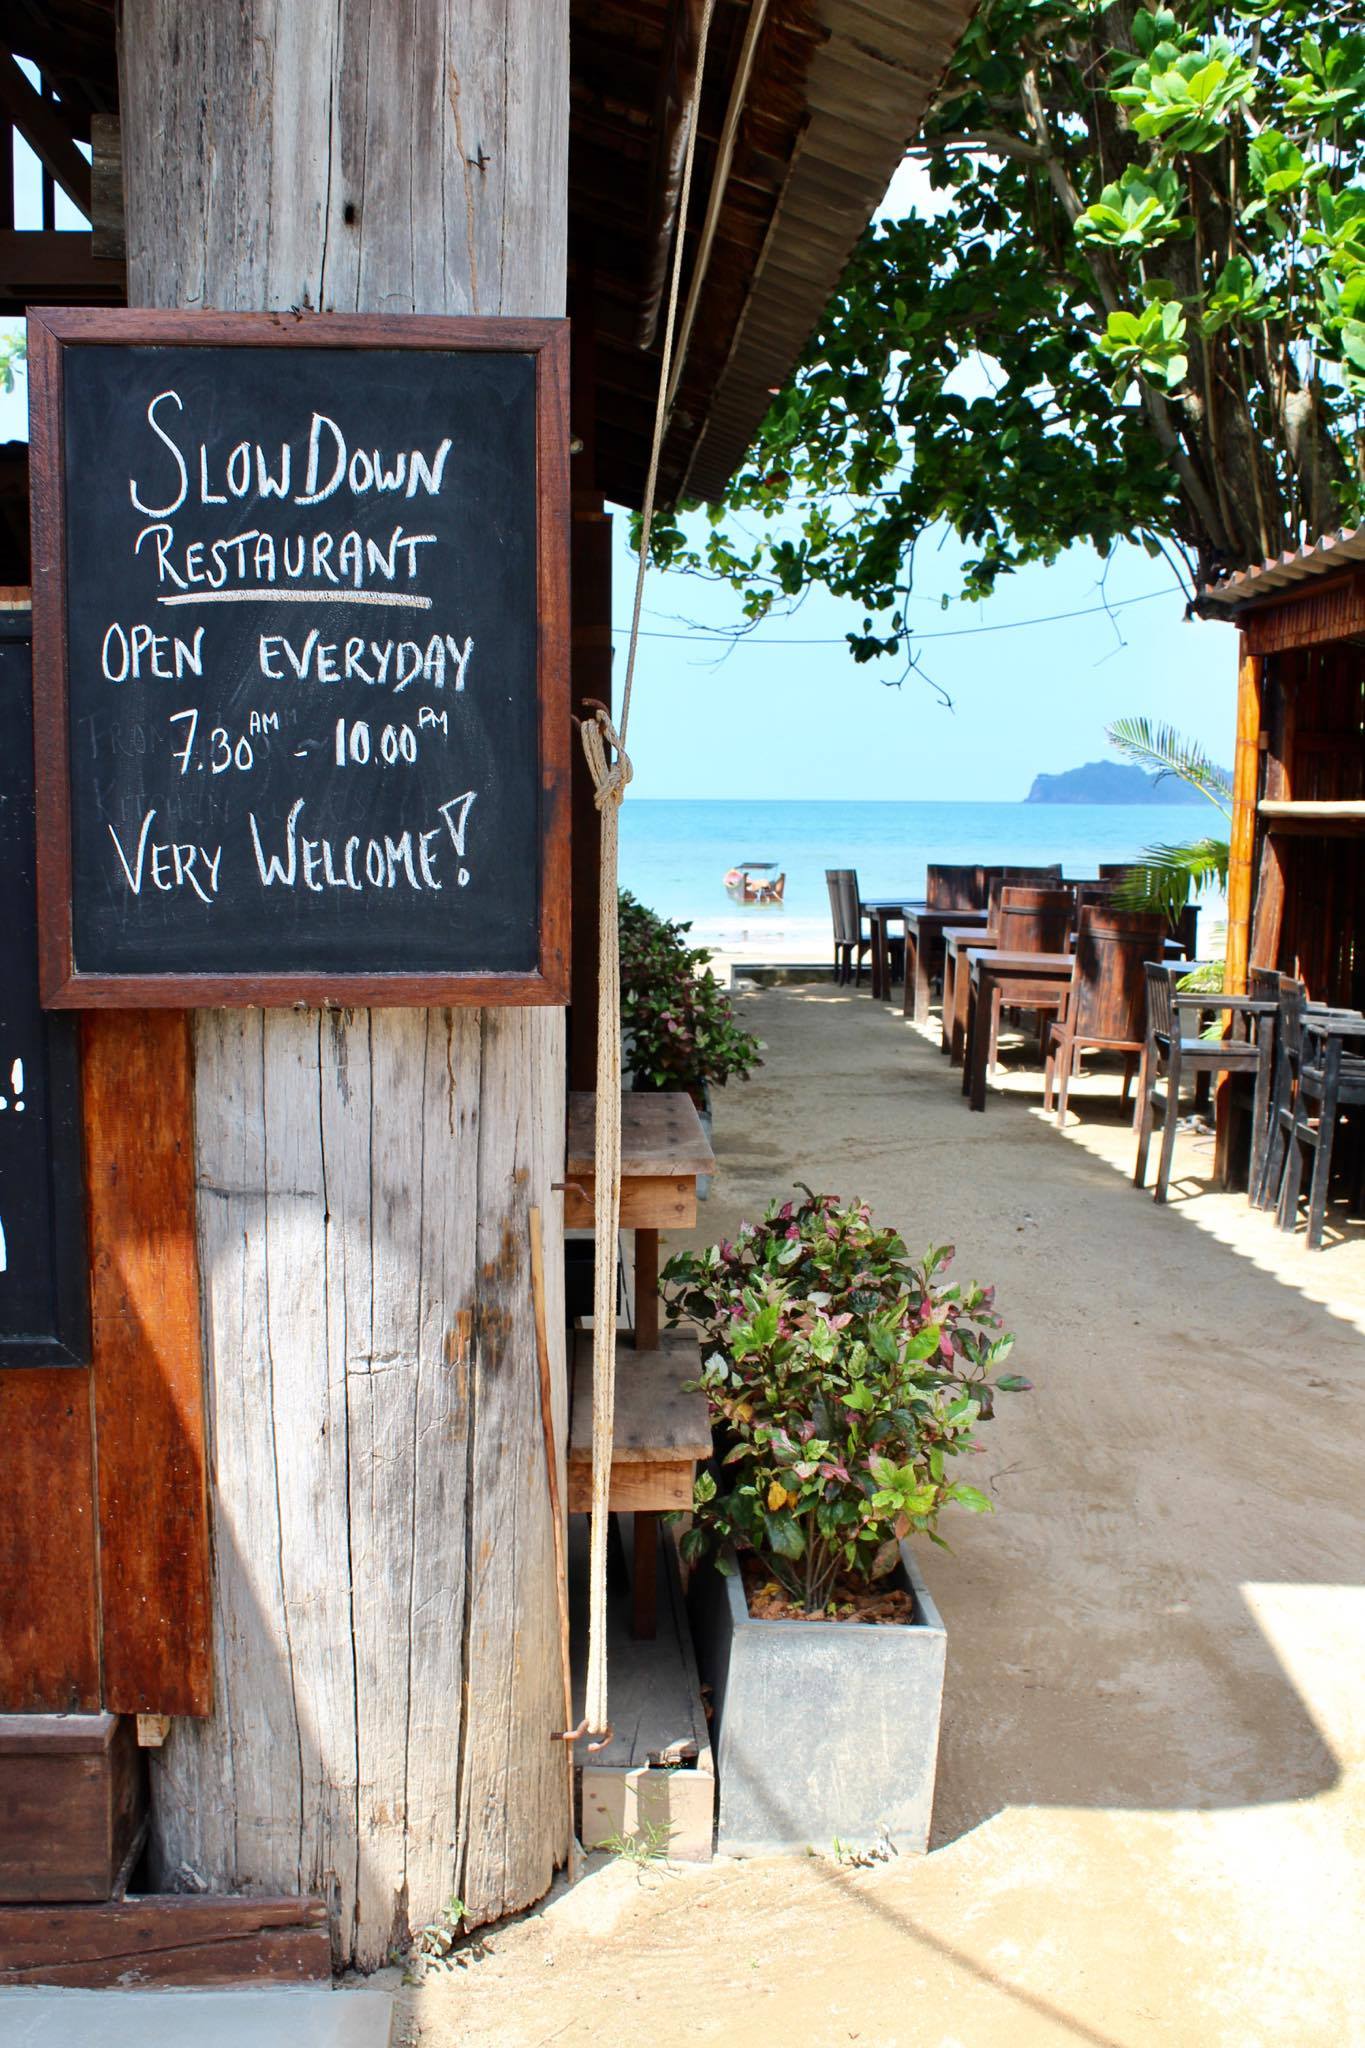 SLOW DOWN
RESTAURANT
OPEN EVERYDAY
7.30 AM - 10.00 PM
VERY WELCOME!
!